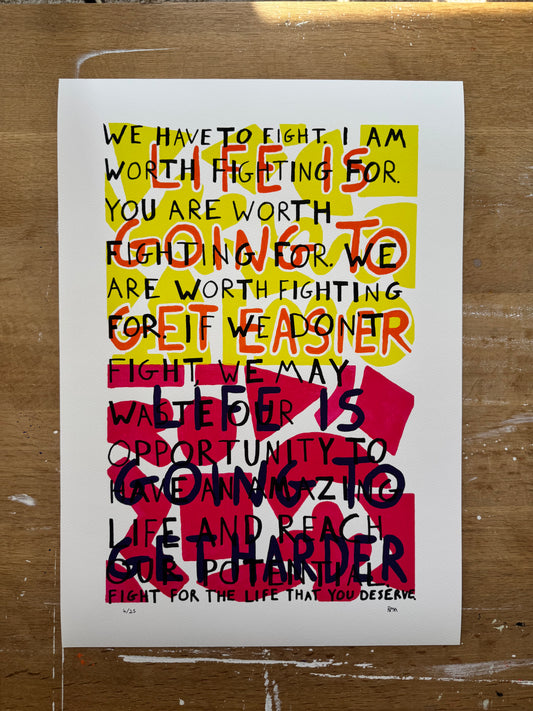 WE HAVE TO FIGHT. I AM
WORTH FIGHTING FOR.
YOU ARE WORTH
FIGHTING FOR. WE
ARE WORTH FIGHTING
FOR. IF WE DON'T
FIGHT, WE MAY
WASTE OUR
OPPORTUNITY TO
HAVE AN AMAZING
LIFE AND REACH
OUR POTENTIAL
FIGHT FOR THE LIFE THAT YOU DESERVE
LIFE IS
GOING TO
GET EASIER
LIFE IS
GOING TO
GET HARDER